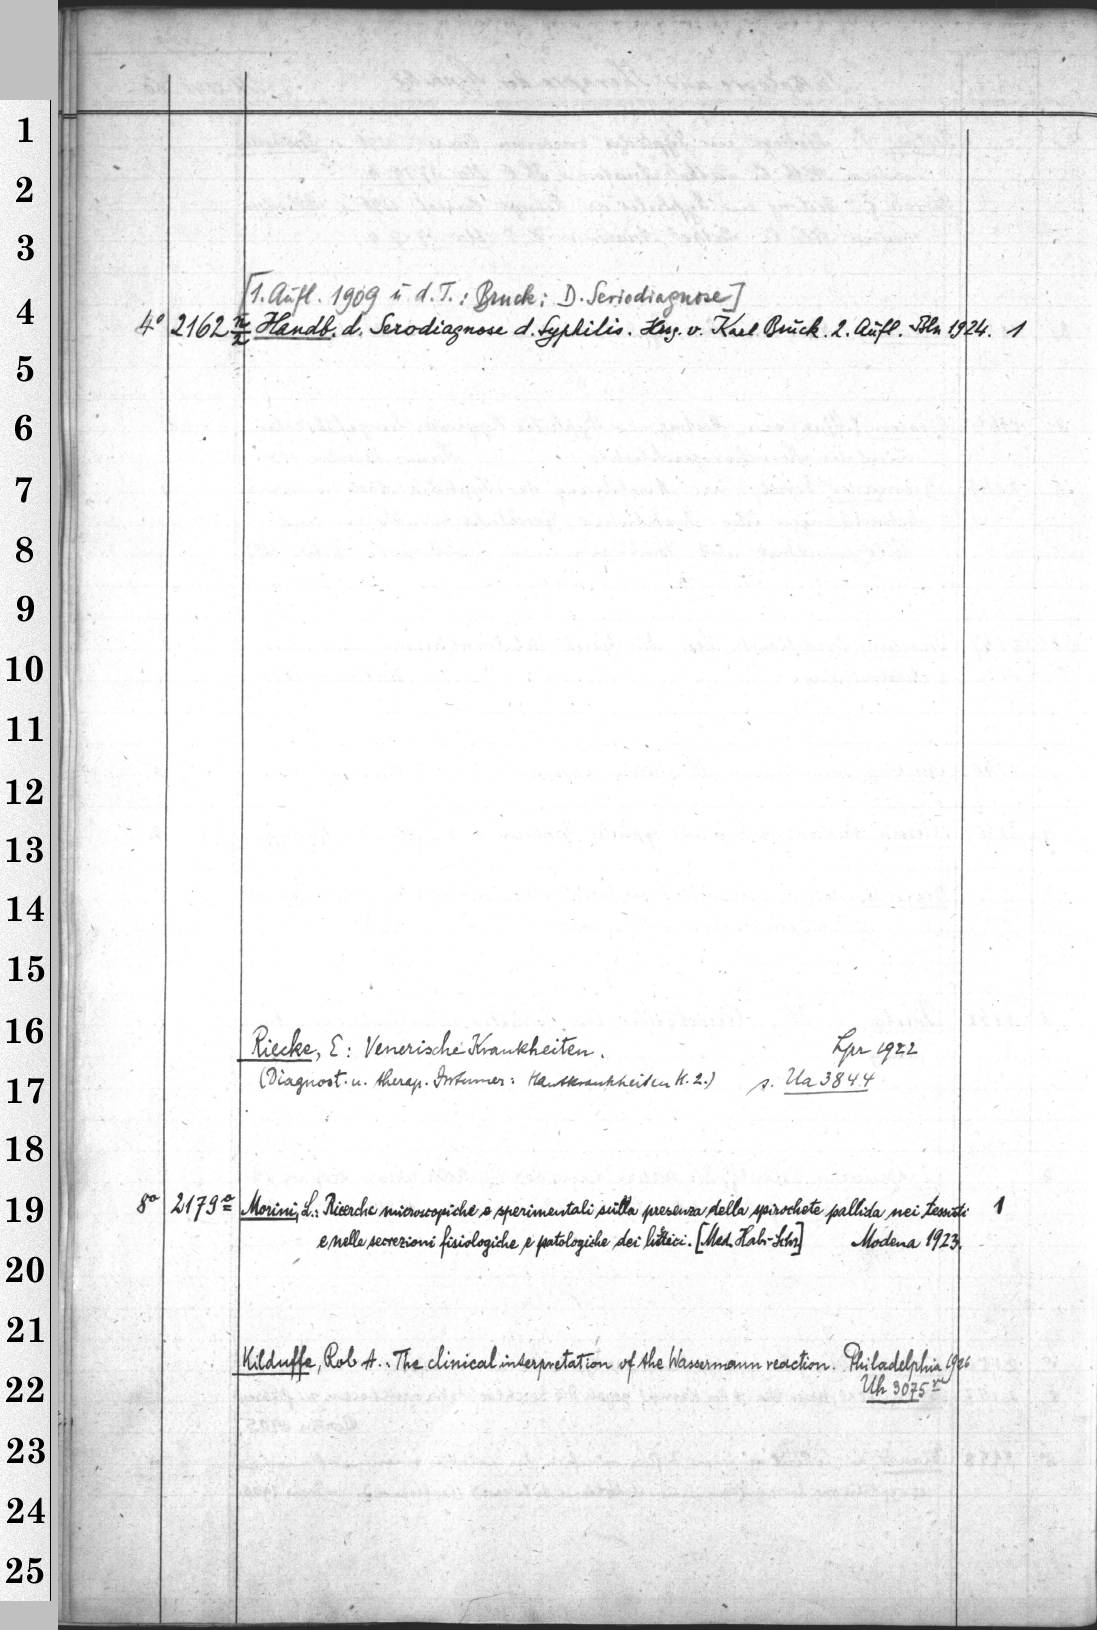 1
2
3
[1. Aufl. 1909 u. d. T.: Bruck: D. Seriodiagnose]
4 4° 2162 n/2 Handb. d. Serodiagnose d. Syphilis. Hrsg. v. Karl Bruck. 2. Aufl. Bln 1924. 1
5
6
7
8
9
10
11
12
13
14
15
16 Riecke, E: Venerische Krankheiten. Lpz 1922
17 (Diagnost. u. therap. : Hautkrankheiten H. 2.) s. Ua 3844
18
19 8° 2179a Morini, L.: Ricerche microscopiche e sperimentali sulla presenza della spirochete pallida nei tessuti 1
e nelle secrezioni fisiologiche e patologiche dei luetici. [Med. Habr-Schr] Modena 1923.
20
21
Kilduffe, Rob A.: The clinical interpretation of the Wassermann reaction. Philadelphia 1926
22 Uh 3075
23
24
25